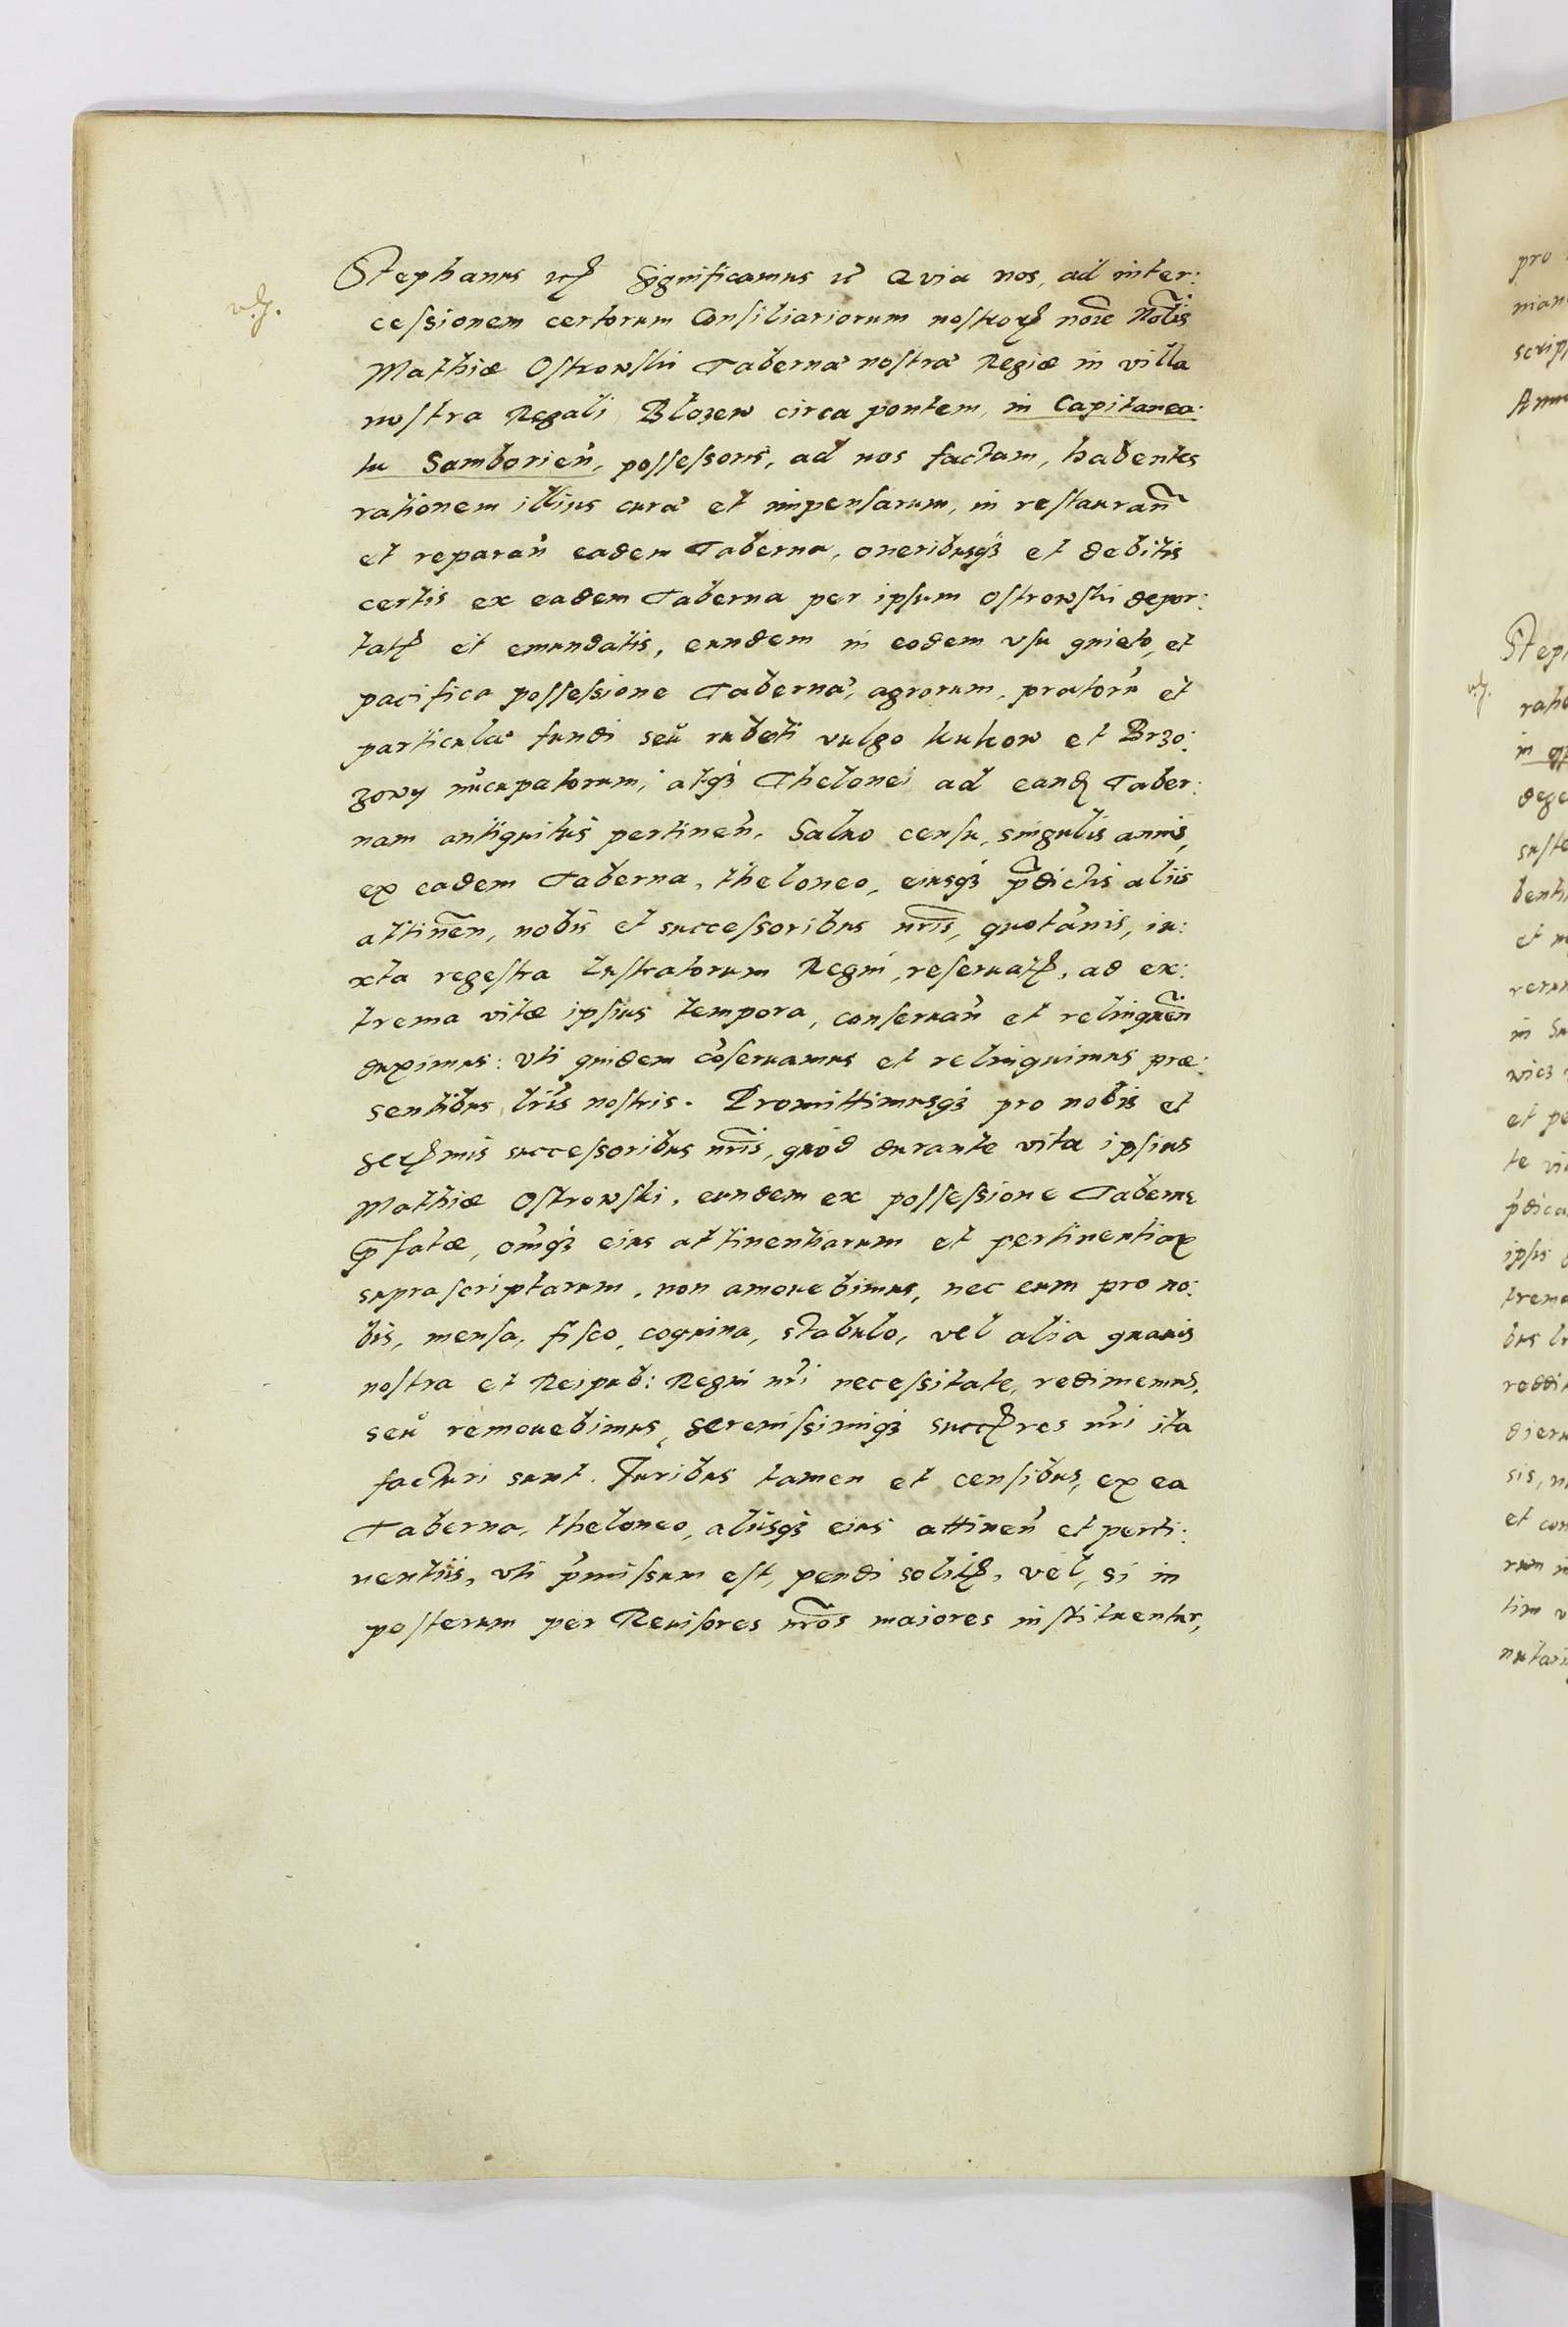 Stephanus etc Significamus etc Quia nos, ad inter:
cessionem certorum Consiliariorum nostrorum noie Nobilis
Mathiæ Ostrowski Tabernæ nostræ Regiæ in villa
nostra Regali Blozew circa pontem, in Capitanea:
tu Samborien, possessoris, ad nos factam, habentes
rationem illius curæ et impensarum, in restauran
et reparan eadem Taberna, oneribusq3 et debitis
certis ex eadem Taberna per ipsum Ostrowski depor:
tatis et emundatis, eundem in eodem vsu quieto, et
pacifica possessione Tabernæ, agrorum, pratorũ et
particulæ fundi seu rubeti vulgo Kukow et Brzo:
zowy nũcupatorum, atq3 Thelonei ad eand Taber:
nam antiquitus pertinen. Saluo censu, singulis annis,
ex eadem Taberna, theloneo, eiusq3 p̃dictis aliis
attinen, nobis et successoribus nr̃is, quotãnis, iu:
xta regestra Lustratorum Regni, reseruatis, ad ex:
trema vitæ ipsius tempora, conseruan et relinquen
duximus: vti quidem cõseruamus et relinquimus præ:
sentibus lr̃is nostris. Promittimusq3 pro nobis et
Serenmis successoribus nr̃is, quod durante vita ipsius
Mathiæ Ostrowski, eundem ex possessione Tabernæ
p̃fatæ, om̃q3 eius attinentiarum et pertinentiar
suprascriptarum, non amouebimus, nec eum pro no:
bis, mensa, fisco, coquina, stabulo, vel alia quauis
nostra et Reipub: Regni nr̃i necessitate, redimemus,
seu remouebimus, Serenissimiq3 succres nr̃i ita
facturi sunt. Juribus tamen et censibus, ex ea
Taberna, theloneo, aliisq3 eius attinen et perti:
nentiis, vti p̃missum est, pendi solitis, vel, si in
posterum per Reuisores nr̃os maiores instituentur,